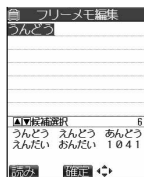 フリーメモ編集
うんどう
▲▼候補選択 6
うんどう えんどう あんどう
えんだい おんだい 1041
読み 確定